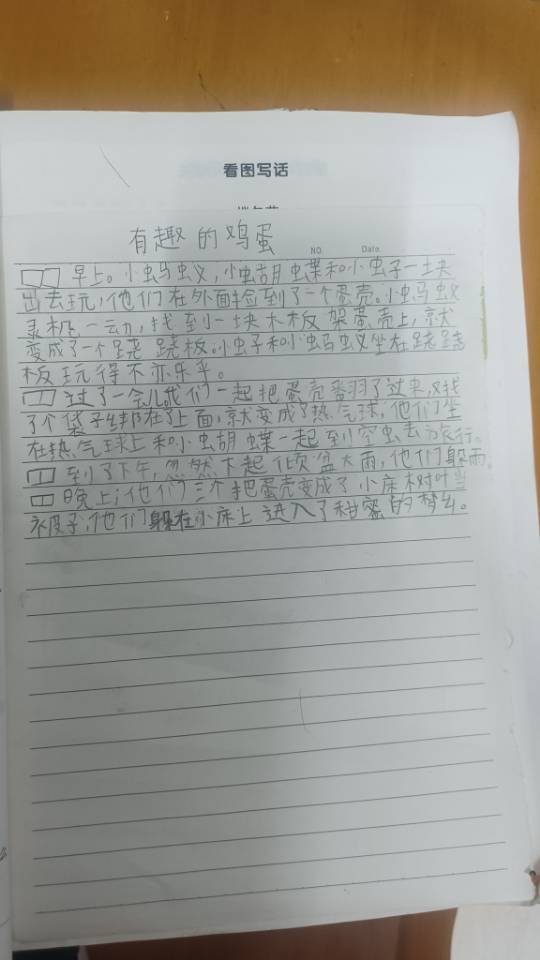 看图写话
有趣的鸡蛋
NO.
Date.
早上。小蚂蚁,小蝴蝶和小虫子一块
出去玩,他们在外面捡到了一个蛋壳。小蚂蚁
灵机一动,找到一块木板架蛋壳上,就
变成了一个跷跷板,小虫子和小蚂蚁坐在跷跷
板玩得不亦乐乎。
过了一会儿我们一起把蛋壳翻了过来,又找
了个袋子绑在了上面,就变成了热气球,他们坐
在热气球上和小蝴蝶一起到空去旅行。
到了下午,忽然下起倾盆大雨,他们躲雨。
晚上,他们三个把蛋壳变成了小床树叶当
被子,他们躲在小床上进入了甜密的梦乡。